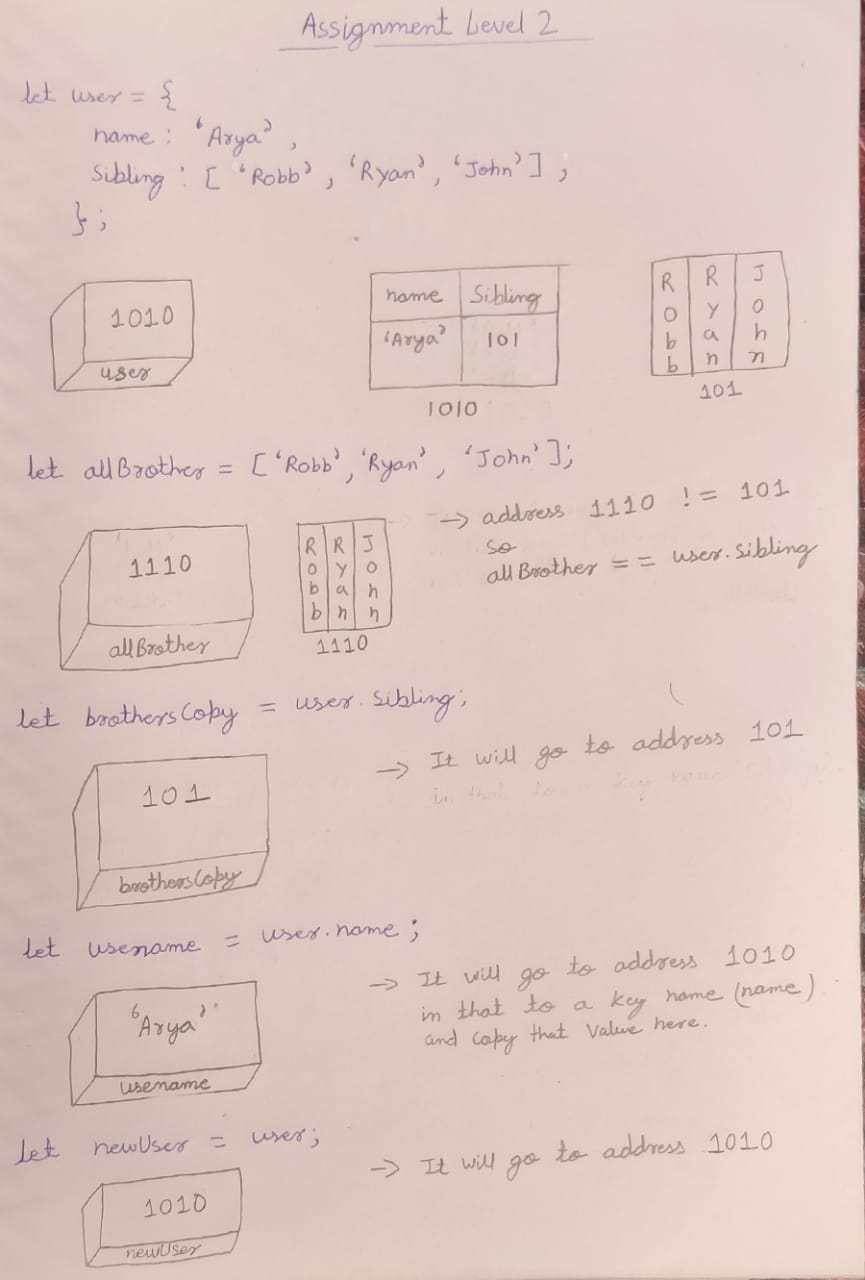 Assignment Level 2
let user = {
name : 'Arya',
Sibling : [ 'Robb', 'Ryan', 'John' ] ;
} ;
1010
user
name Sibling
'Arya' 101
1010
R R J
o y o
b a h
b n n
101
let allBrother = [ 'Robb', 'Ryan', 'John' ];
1110
allBrother
R R J
o y o
b a h
b n n
1110
→ address 1110 != 101
so
allBrother == user.sibling
let brothersCopy = user.sibling;
101
brothersCopy
→ It will go to address 101
in that to a key name
let usename = user.name ;
'Arya'
usename
→ It will go to address 1010
in that to a key name (name)
and copy that value here.
let newUser = user;
1010
newUser
→ It will go to address 1010